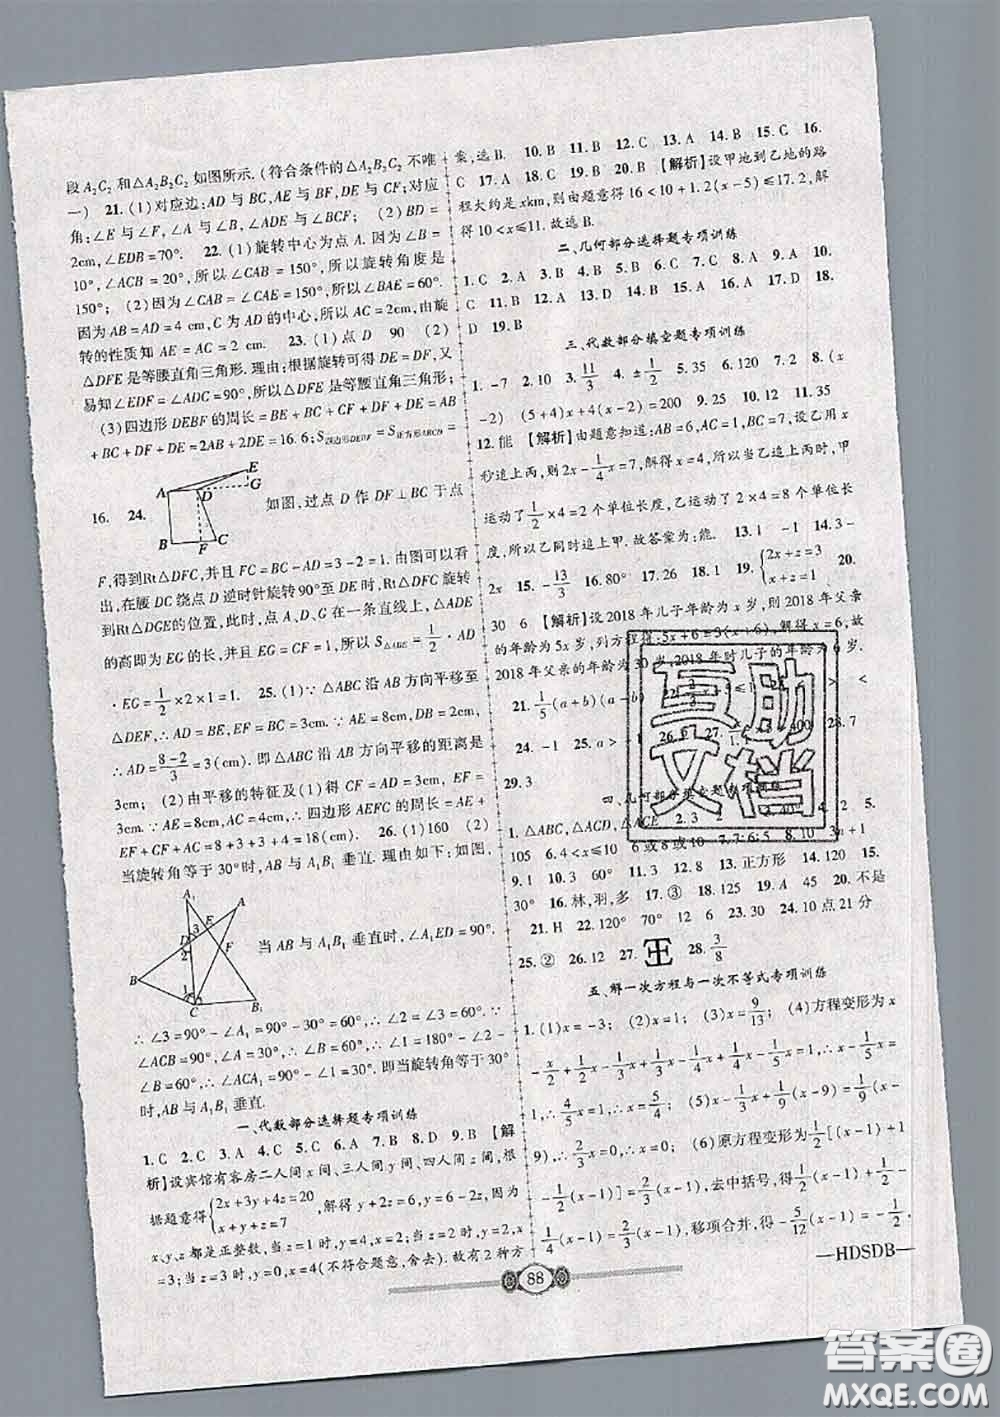 段A₂C₂和△A₂B₂C₂如图所示.(符合条件的△A₂B₂C₂不唯
一) 21.(1)对应边:AD与BC,AE与BF,DE与CF;对应
角:∠E与∠F,∠A与∠B,∠ADE与∠BCF; (2)BD=
2cm,∠EDB=70°. 22.(1)旋转中心为点A.因为∠B=
10°,∠ACB=20°,所以∠CAB=150°,所以旋转角度是
150°; (2)因为∠CAB=∠CAE=150°,所以∠BAE=60°.
因为AB=AD=4 cm,C为AD的中心,所以AC=2cm,由旋
转的性质知AE=AC=2 cm. 23.(1)点D 90 (2)
△DFE是等腰直角三角形.理由:根据旋转可得DE=DF,又
易知∠EDF=∠ADC=90°,所以△DFE是等腰直角三角形;
(3)四边形DEBF的周长=BE+BC+CF+DF+DE=AB
+BC+DF+DE=2AB+2DE=16.6;S四边形DEDF=S正方形ABCD=
16. 24. 如图,过点D作DF⊥BC于点
A D E G B F C
F,得到Rt△DFC,并且FC=BC-AD=3-2=1.由图可以看
出,在腰DC绕点D逆时针旋转90°至DE时,Rt△DFC旋转
到Rt△DGE的位置,此时,点A、D、G在一条直线上,△ADE
的高即为EG的长,并且EG=CF=1,所以S△ADE=1/2·AD
·EG=1/2×2×1=1. 25.(1)∵△ABC沿AB方向平移至
△DEF,∴AD=BE,EF=BC=3cm.∵AE=8cm,DB=2cm.
∴AD=(8-2)/3=3(cm).即△ABC沿AB方向平移的距离是
3cm; (2)由平移的特征及(1)得CF=AD=3cm, EF=
3cm.∵AE=8cm,AC=4cm,∴四边形AEFC的周长=AE+
EF+CF+AC=8+3+3+4=18(cm). 26.(1)160 (2)
当旋转角等于30°时,AB与A₁B₁垂直.理由如下:如图,
A₁ A E 3 D F 2 B 1 C B₁
当AB与A₁B₁垂直时,∠A₁ED=90°,
∴∠3=90°-∠A₁=90°-30°=60°,∴∠2=∠3=60°.∵
∠ACB=90°,∠A=30°,∴∠B=60°,∴∠1=180°-∠2-
∠B=60°,∴∠ACA₁=90°-∠1=30°.即当旋转角等于30°
时,AB与A₁B₁垂直.
一、代数部分选择题专项训练
1.C 2.C 3.A 4.C 5.C 6.A 7.B 8.D 9.B 【解
析】设宾馆有客房二人间x间、三人间y间、四人间z间,根
据题意得{2x+3y+4z=20 x+y+z=7,解得y+2z=6,y=6-2z,因为
x、y、z都是正整数,当z=1时,y=4,x=2;当z=2时,y=2,x
=3;当z=3时,y=0,x=4(不符合题意,舍去).故有2种方
案,选B. 10.B 11.B 12.C 13.A 14.B 15.C 16.
C 17.A 18.C 19.C 20.B 【解析】设甲地到乙地的路
程大约是xkm,则由题意得16<10+1.2(x-5)≤17.2,解
得10<x≤11.故选B.
二、几何部分选择题专项训练
1.C 2.A 3.B 4.B 5.B 6.C 7.C 8.A 9.A 10.
C 11.B 12.D 13.B 14.C 15.B 16.A 17.D 18.
D 19.B
三、代数部分填空题专项训练
1.-7 2.10 3.11/3 4.±1/2 5.35 6.120 7.2 8.(x
-2) (5+4)x+4(x-2)=200 9.25 10.12 11.35
12.能 【解析】由题意知道:AB=6,AC=1,BC=7,设乙用x
秒追上两,则2x-1/4x=7,解得x=4,所以当乙追上丙时,甲
运动了1/2×4=2个单位长度,乙运动了2×4=8个单位长
度,所以乙同时追上甲.故答案为:能. 13.1 -1 14.3-
2x 15.-13/3 16.80° 17.26 18.1 19.{2x+z=3 x+z=3 20.
30 6 【解析】设2018年儿子年龄为x岁,则2018年父亲
的年龄为5x岁,列方程得:5x+6=3(x+6),解得x=6,故
2018年父亲的年龄为30岁,2018年时儿子的年龄为6岁.
21.1/5(a+b)(a-b)
24.-1 25.a> 28.7
29.3
四、几何部分填空题专项训练
1.△ABC,△ACD,△ACE 2.3 4.2 5.
105 6.4<x≤10 6或8或10 7.7:6:5 8.10 3n+1
9.1 10.3 60° 11.9 12.8 13.正方形 14.120 15.
30° 16.林,羽,多 17.③ 18.125 19.A 45 20.不是
21.H 22.120° 70° 12 6 23.30 24.10点21分
25.② 26.12 27. 28.3/8
五、解一次方程与一次不等式专项训练
1.(1)x=-3; (2)x=1; (3)x=9/13; (4)方程变形为x
-x/2+1/2x-1/3x+1/3x-1/4x+1/4x-1/5x=1,∴x-1/5x=
1,∴4/5x=1,∴x=5/4; (5)x-1/3x+1/9(x-9)=1/9(x-
9),∴2/3x=0,∴x=0; (6)原方程变形为1/2[(x-1)+1
-1/2(x-1)]=2/3(x-1),去中括号,得1/2(x-1)+1/2-
1/4(x-1)=2/3(x-1),移项合并,得-5/12(x-1)=-1/2,
88
—HDSDB—
互助
文档
答案圈
MXQE.COM